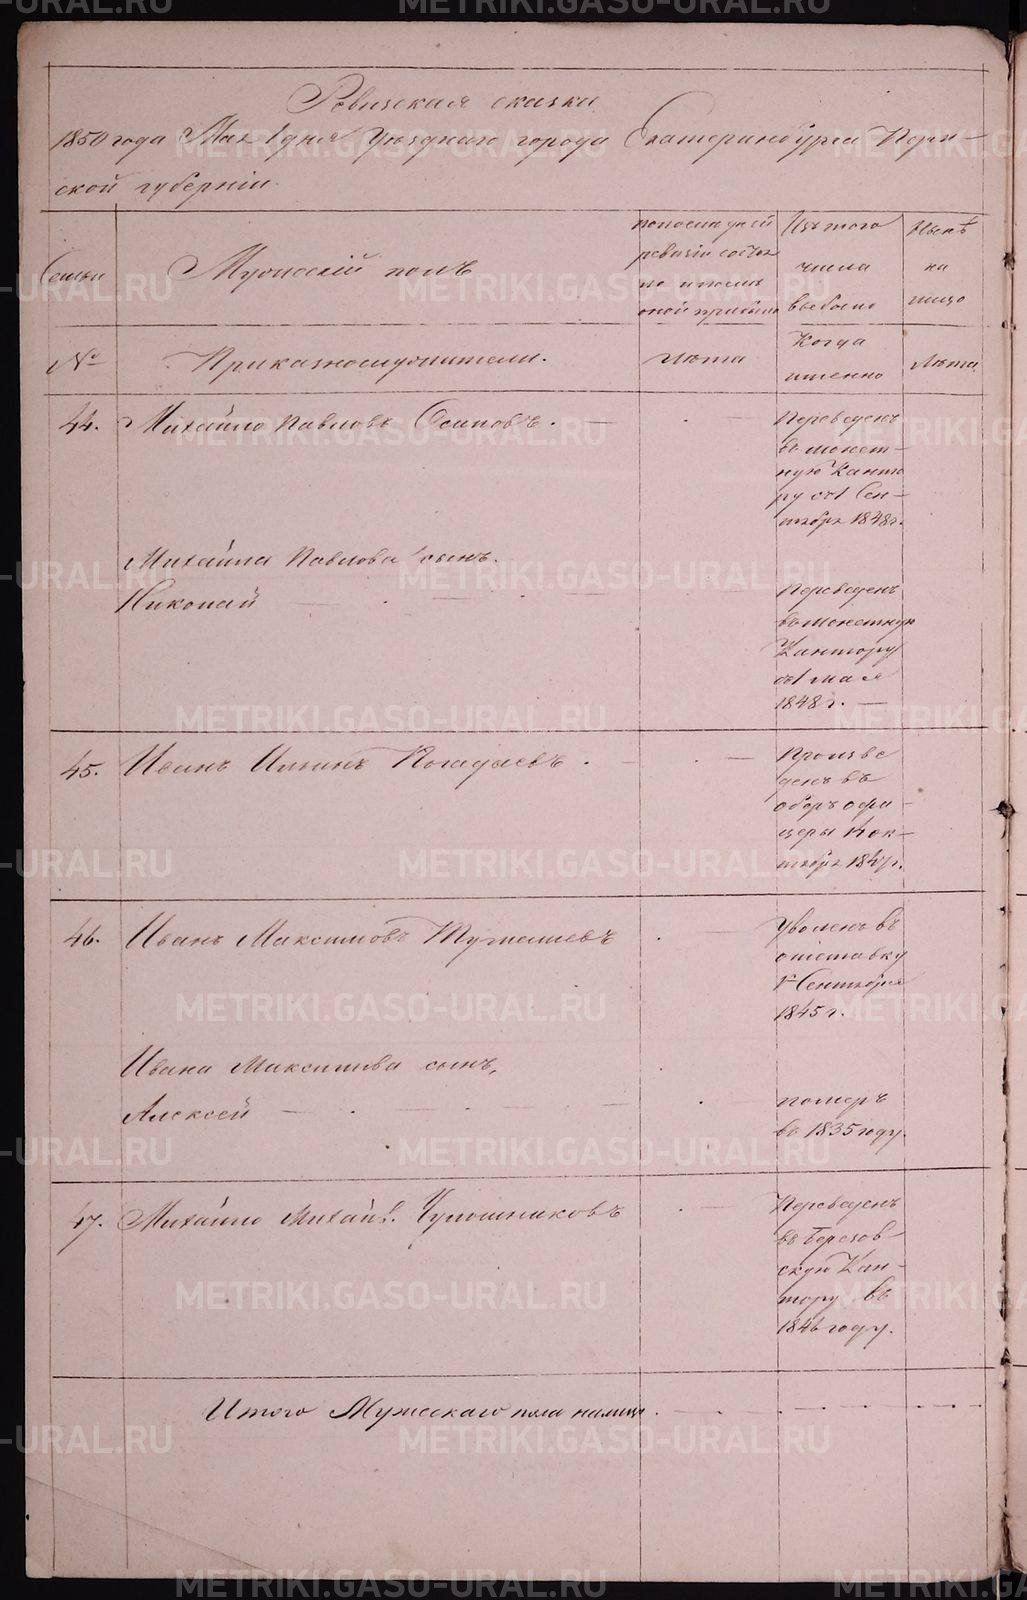 Ревизская сказка
1850 года Мая 1 дня Уезднаго города Екатеринбурга Перм-
ской губерніи.
Семьи
Мужескій полъ
по последней
ревизіи состоя
ло и после
оной прибыло
Изъ того
числа
выбыло
Ныне
на
лицо
№
Приказнослужители.
Лѣта
Когда
именно
Лѣта
44. Михайло Павловъ Осиповъ. —
Переведенъ
въ монет-
ную Канто
ру съ 1 Сен-
тября 1848 г.
Михайла Павлова сынъ.
Николай
Переведенъ
въ монетную
Кантору
съ 1 мая
1848 г. —
45. Иванъ Ильинъ Погадаевъ.
Произве
денъ въ
оберъ офи-
церы
тября
46. Иванъ Максимовъ Тумашевъ
Уволенъ въ
отставку
Сентября
1845 г.
Ивана Максимова сынъ,
Алексей
померъ
въ 1835 году.
47. Михайло Михайл. Чупошниковъ
Переведенъ
въ Березов-
скую Кан-
тору въ
1846 году.
Итого Мужескаго пола налицо
METRIKI.GASO-URAL.RU